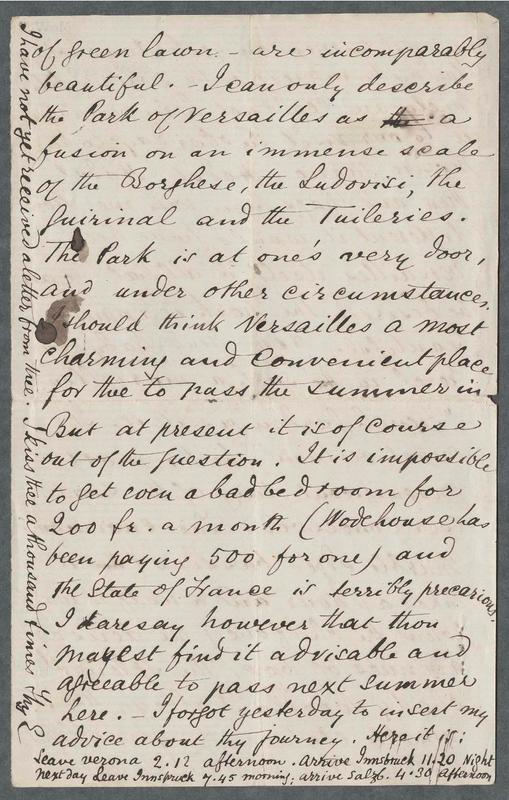 of green lawn. - are incomparably
beautiful. - I can only describe
the Park of Versailles as the a
fusion on an immense scale
of the Borghese, the Ludovisi, the
Quirinal and the Tuileries.
The Park is at one's very door,
and under other circumstances
I should think Versailles a most
charming and convenient place
for thee to pass the summer in.
But at present it is of course
out of the question. It is impossible
to get even a bad bedroom for
200 fr. a month (Wodehouse has
been paying 500 for one) and
the State of France is terribly precarious.
I daresay however that thou
mayest find it advisable and
agreeable to pass next summer
here. - I forgot yesterday to insert my
advice about thy journey. Here it is:
Leave Verona 2.12 afternoon. Arrive Innsbruck 11.20 Night
next day Leave Innspruck 7.45 morning: arrive Salzb. 4.30 afternoon
I have not yet received a letter from thee. I kiss thee a thousand times Thy E